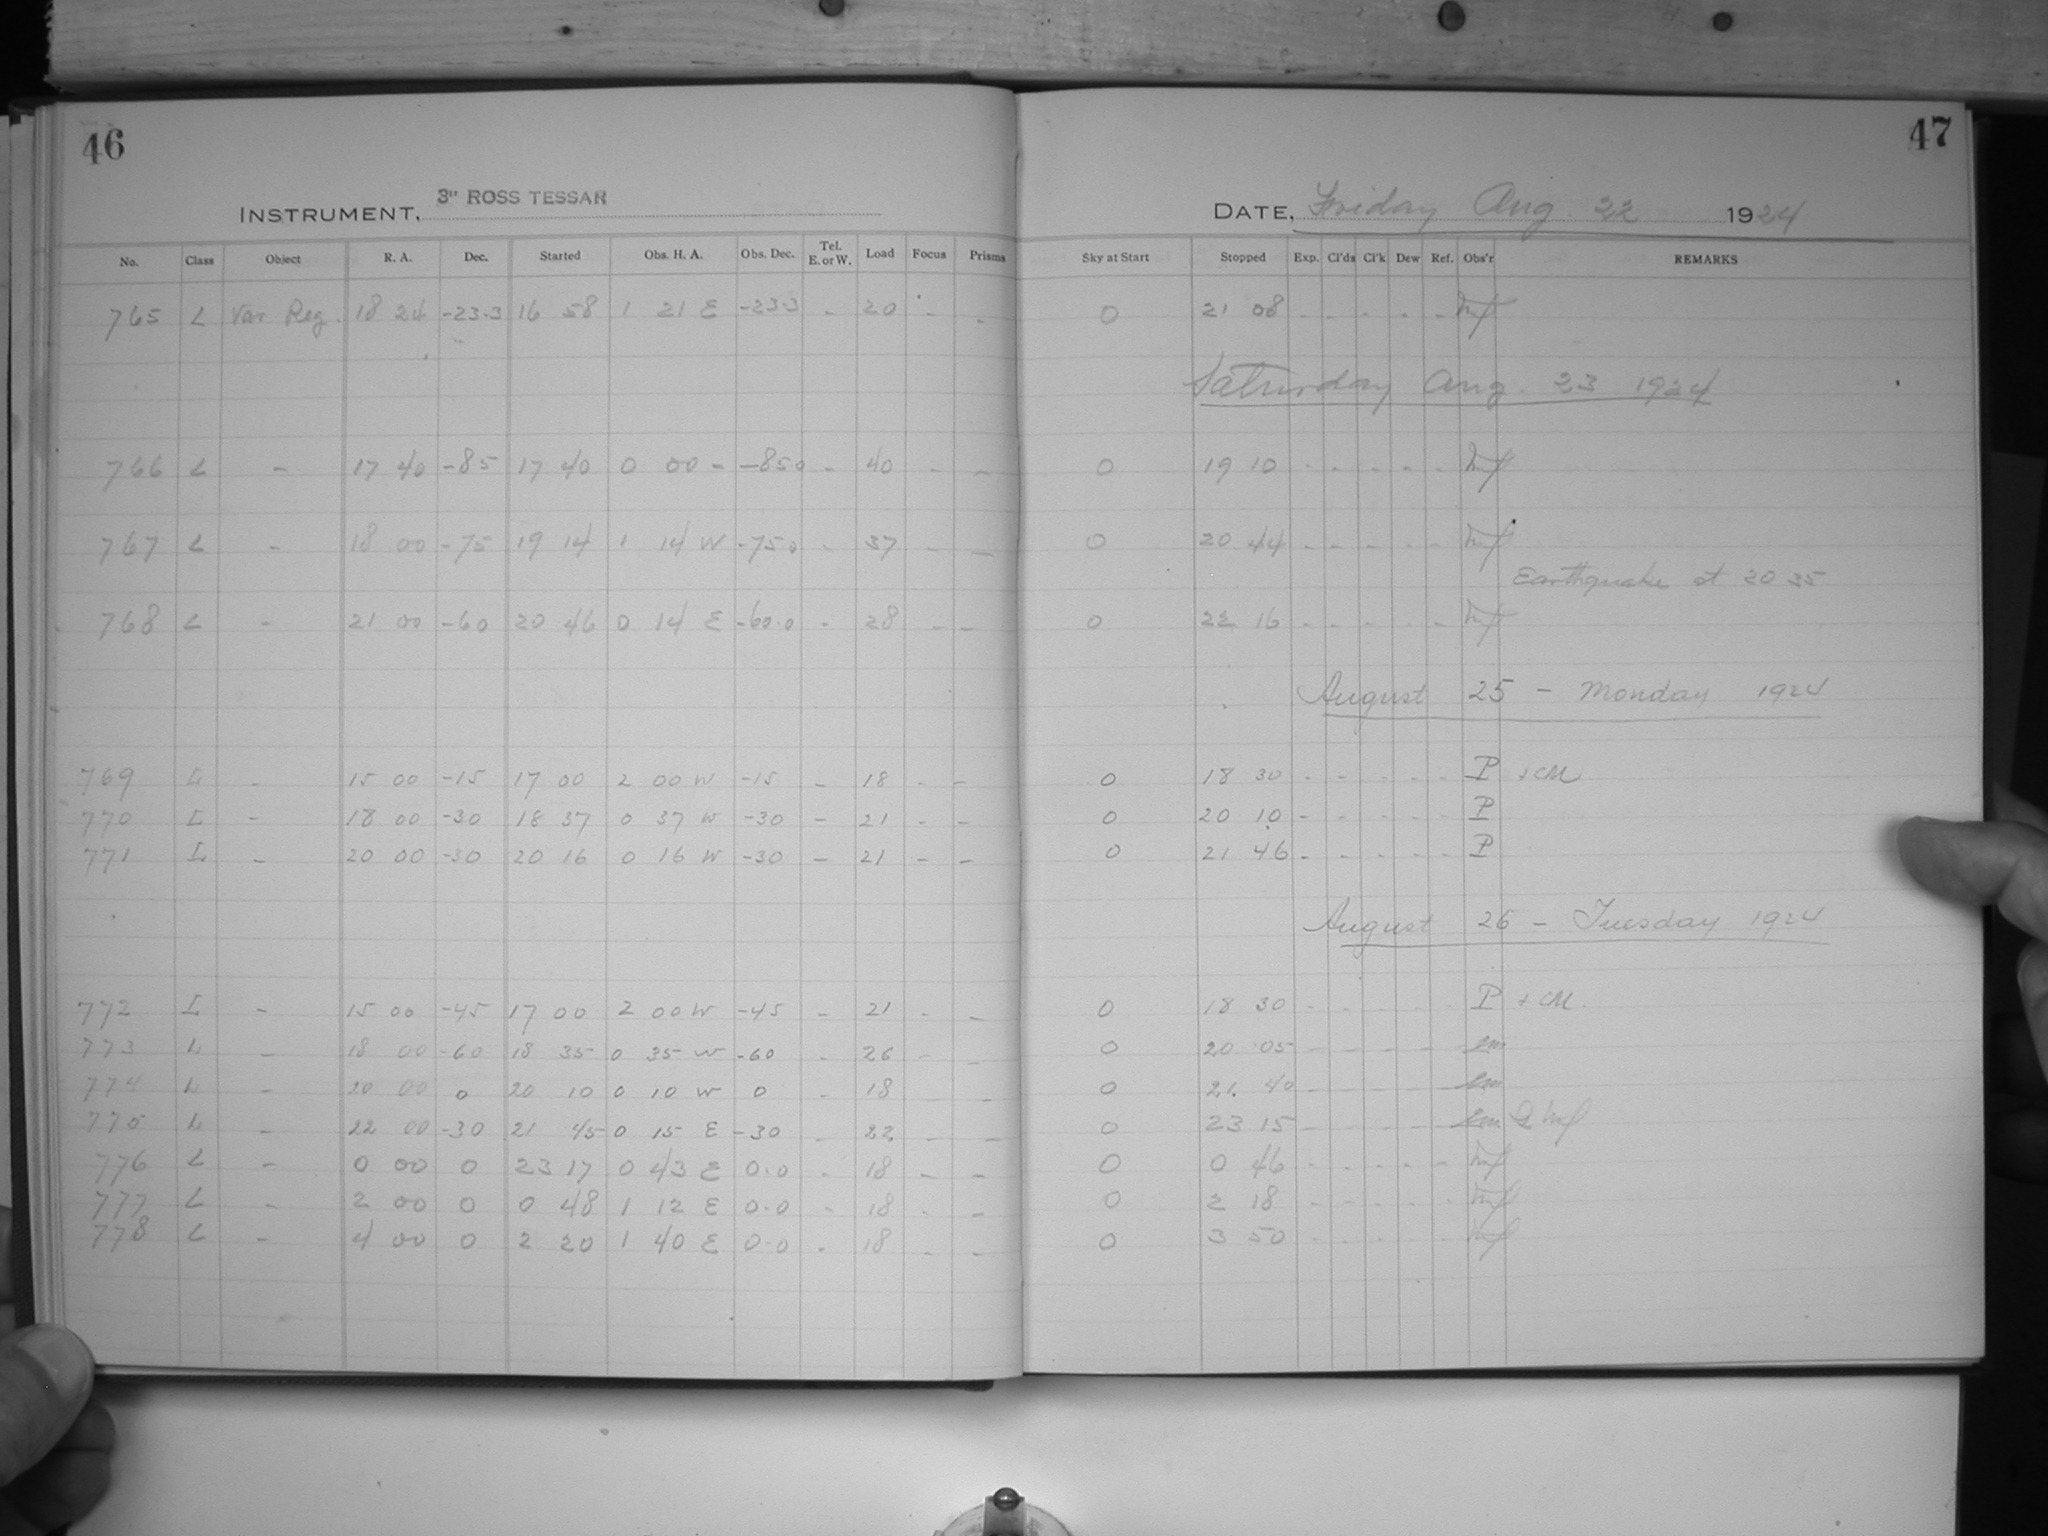 46
47
INSTRUMENT, 3" ROSS TESSAR
DATE, Friday Aug 22 1924
No. Class Object R. A. Dec. Started Obs. H. A. Obs. Dec. Tel. E. or W. Load Focus Prisms Sky at Start Stopped Exp. Cl'ds Cl'k Dew Ref. Obs'r REMARKS
765 L Var Reg. 18 24 -23.3 16 58 1 21 E -23.3 - 20 - - 0 21 08 - - - - -
Saturday Aug. 23 1924
766 L - 17 40 -85 17 40 0 00 - -85 0 - 40 - - 0 19 10 - - - - -
767 L - 18 00 -75 19 14 1 14 W -75 0 - 37 - - 0 20 44 - - - - -
Earthquake at 20 35
768 L - 21 00 -60 20 46 0 14 E -60.0 - 28 - - 0 22 16 - - - - -
August 25 - Monday 1924
769 L - 15 00 -15 17 00 2 00 W -15 - 18 - - 0 18 30 - - - - - P + CM
770 L - 18 00 -30 18 37 0 37 W -30 - 21 - - 0 20 10 - - - - - P
771 L - 20 00 -30 20 16 0 16 W -30 - 21 - - 0 21 46 - - - - - P
August 26 - Tuesday 1924
772 L - 15 00 -45 17 00 2 00 W -45 - 21 - - 0 18 30 - - - - - P + CM.
773 L - 18 00 -60 18 35 0 35 W -60 - 26 - - 0 20 05 - - - - -
774 L - 20 00 0 20 10 0 10 W 0 - 18 - - 0 21 40 - - - - -
775 L - 22 00 -30 21 45 0 15 E -30 - 22 - - 0 23 15 - - - - -
776 L - 0 00 0 23 17 0 43 E 0.0 - 18 - - 0 0 46 - - - - -
777 L - 2 00 0 0 48 1 12 E 0.0 - 18 - - 0 2 18 - - - - -
778 L - 4 00 0 2 20 1 40 E 0.0 - 18 - - 0 3 50 - - - - -